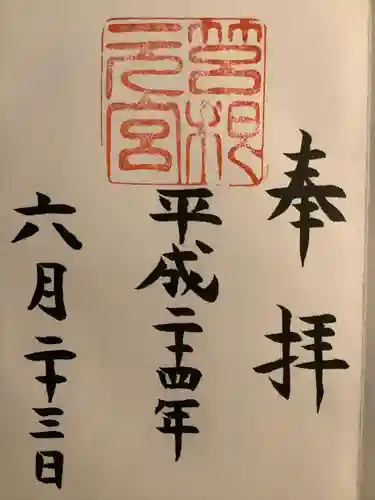 奉拝
筥根元宮
平成二十四年
六月二十三日